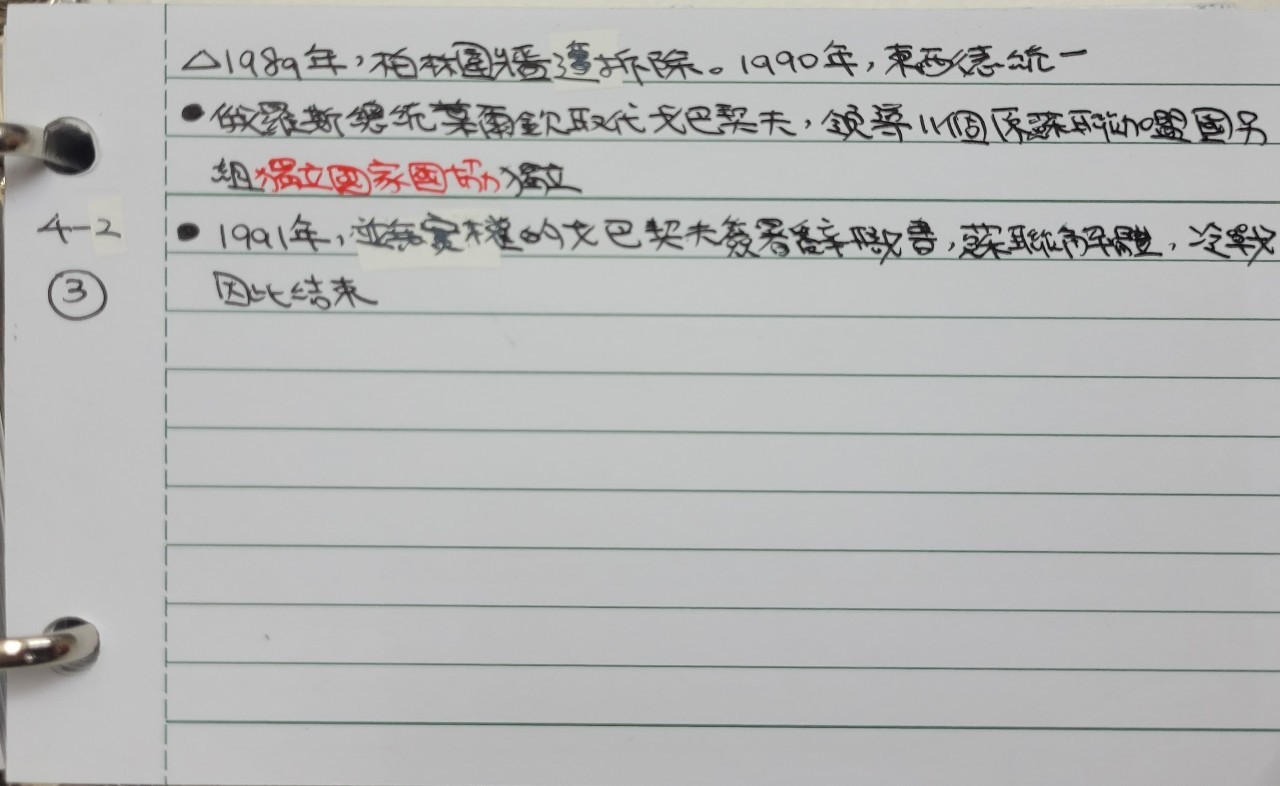 △1989年，柏林圍牆遭拆除。1990年，東西德統一
•俄羅斯總統葉爾欽取代戈巴契夫，領導11個原蘇聯加盟國另
組獨立國家國協獨立
4-2 •1991年，並無實權的戈巴契夫簽署辭職書，蘇聯解體，冷戰
③ 因此結束